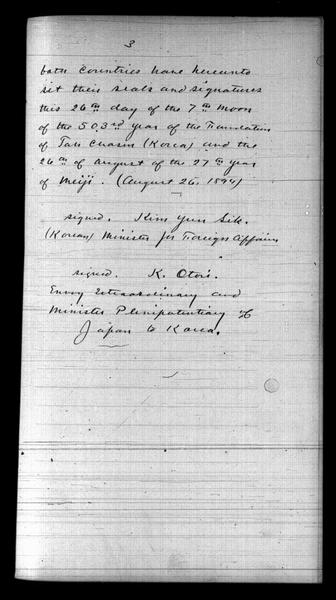 3
both Countries have hereunto
set their seals and signatures
this 26th day of the 7th Moon
of the 503rd year of the
of Tah Chosin (Korea) and the
26th of August of the 27th year
of Meiji. (August 26, 1894)
signed. Kim Yun Sik.
(Korean) Minister for Foreign Affairs
signed. K. Otori.
Envoy Extraordinary and
Minister Plenipotentiary of
Japan to Korea.